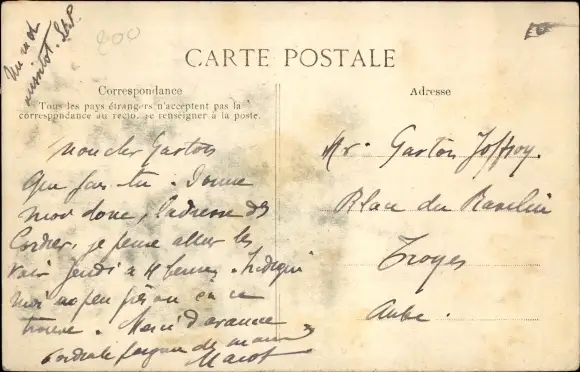 Un mot
S.V.P.
200
CARTE POSTALE
Correspondance
Tous les pays étrangers n'acceptent pas la
correspondance au recto, se renseigner à la poste.
Mon cher Gaston
Que fais-tu. Donne
moi donc, l'adresse des
Cordier, je pense aller les
voir Jeudi à 4 heures. Indique
moi un peu où ça se
trouve. Merci d'avance
Cordiale poignée de main
Marot
Adresse
Mr. Gaston Joffroy.
Place du Ravelin
Troyes
Aube.